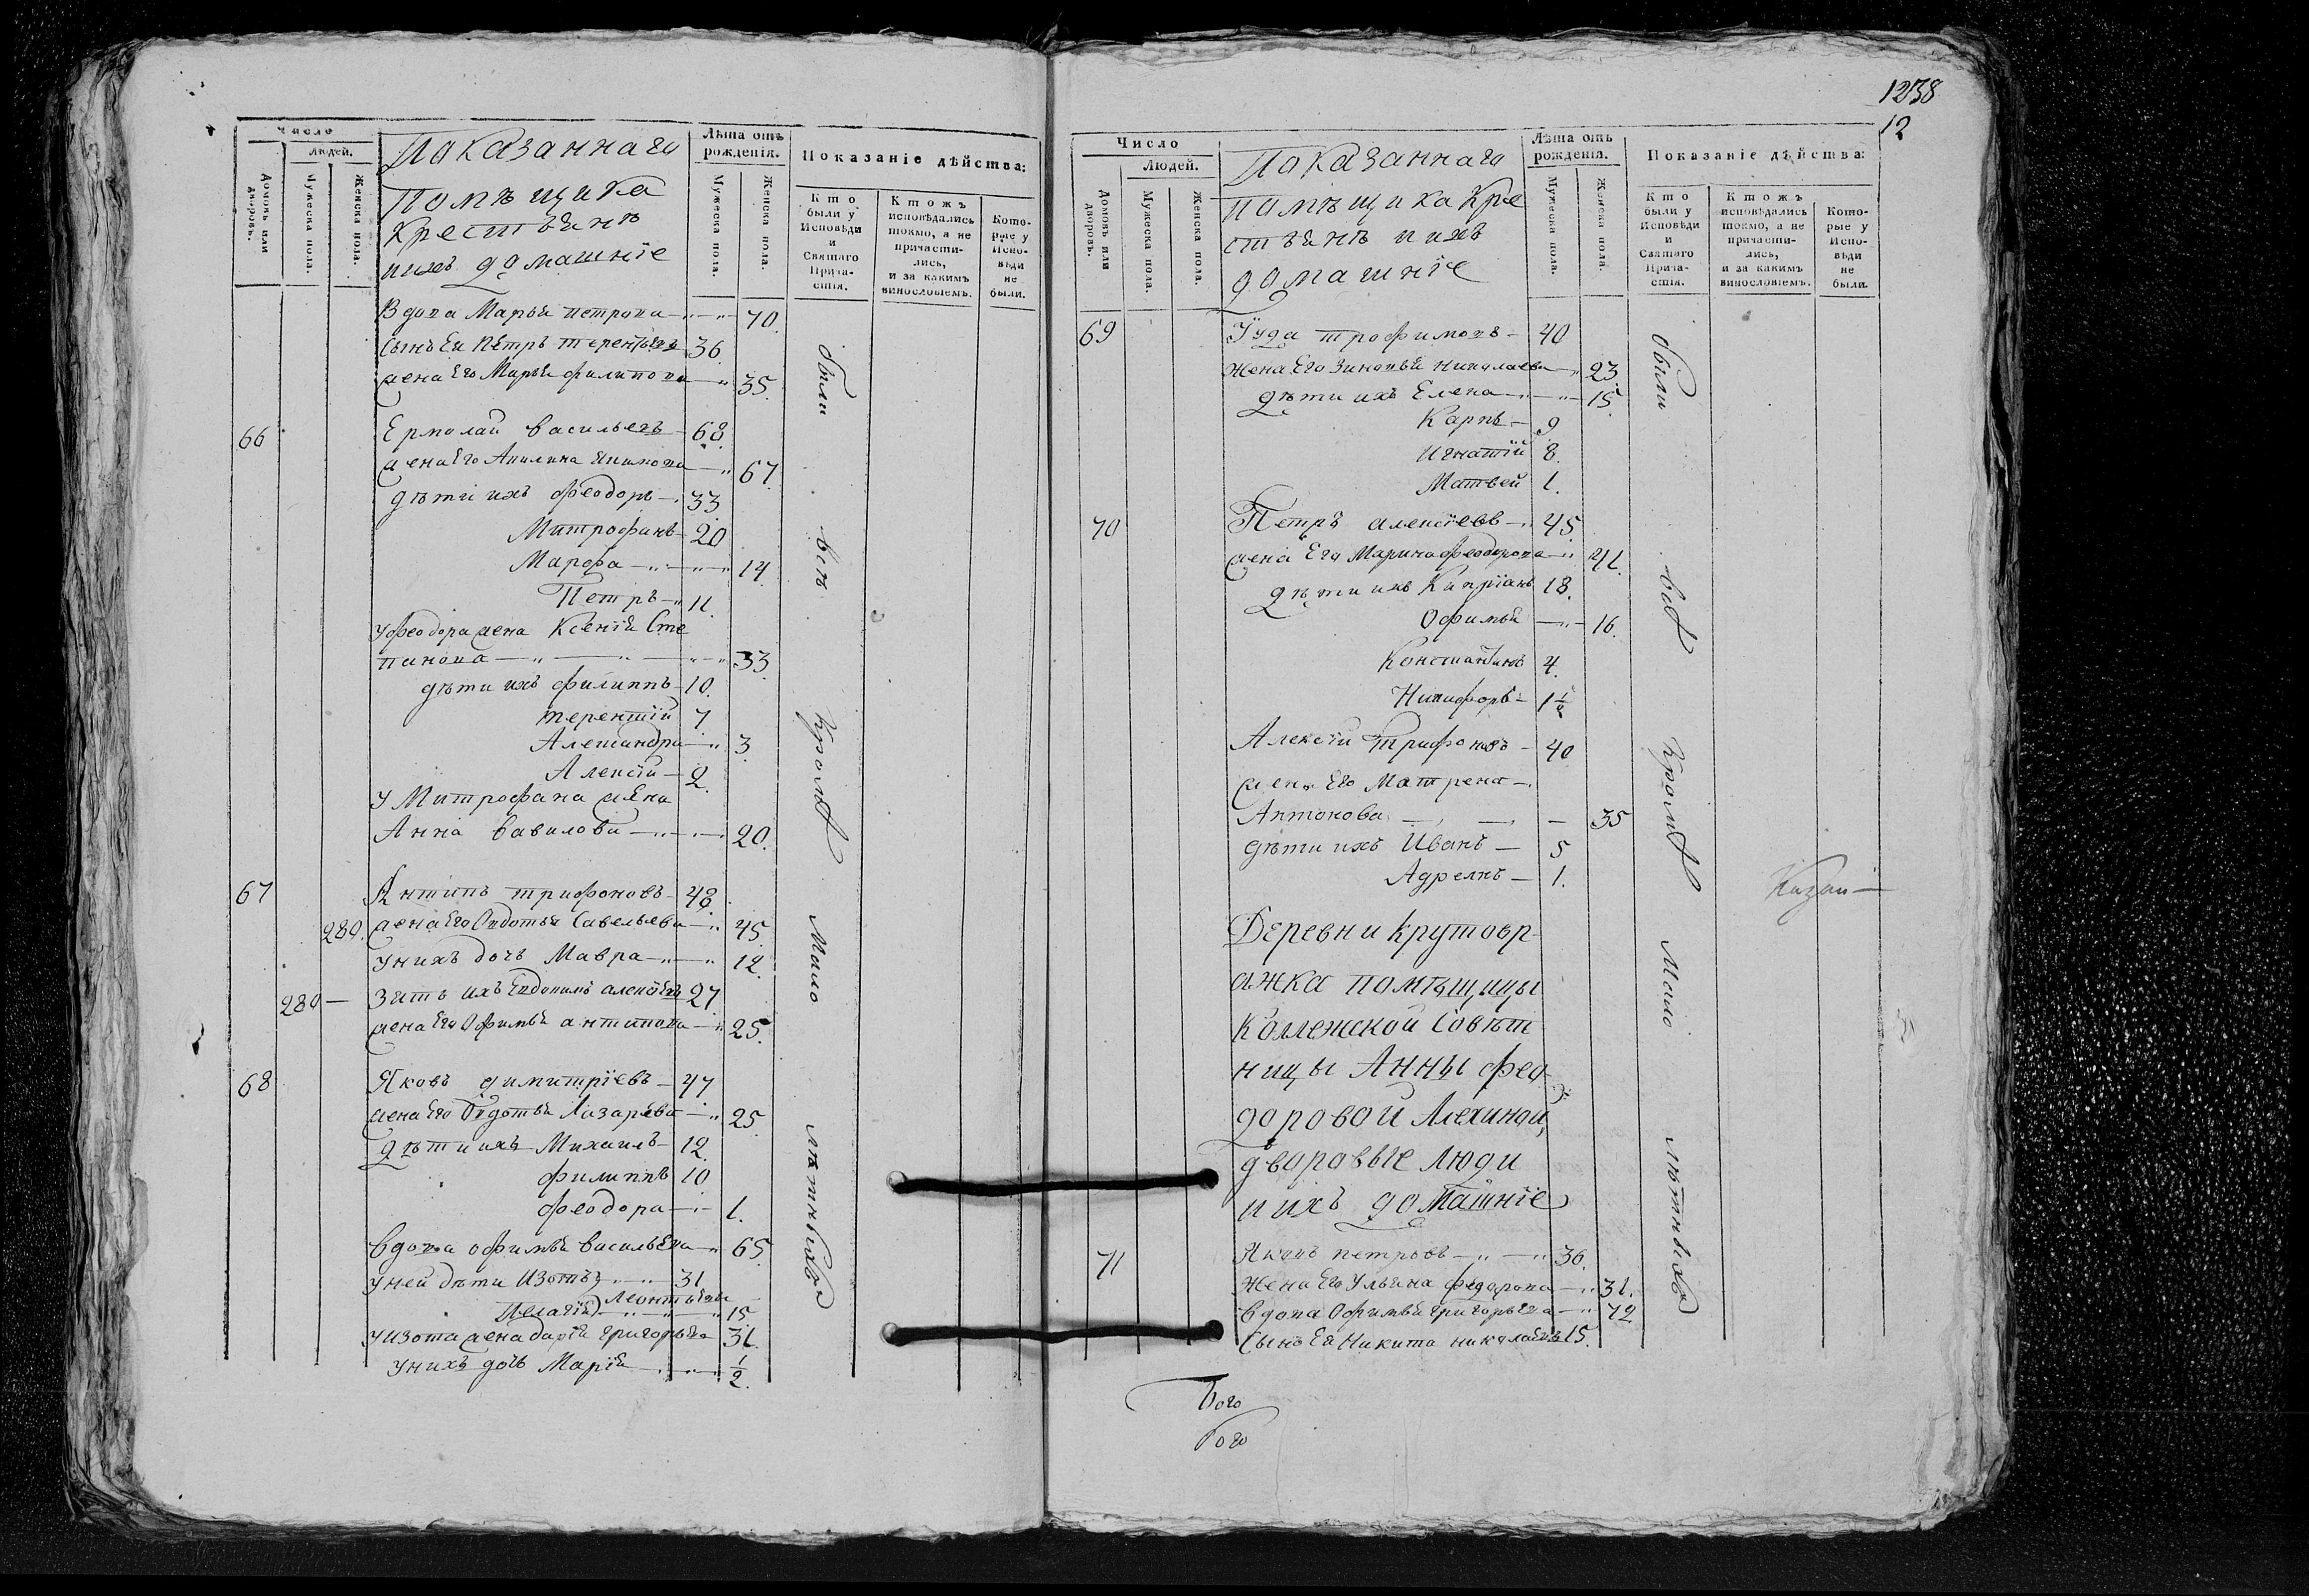 Число
Людей.
Домовъ или дворовъ.
Мужеска пола.
Женска пола.
Показаннаго
помѣщика
крестьянѣ
ихъ домашніе
Лѣта отъ
рожденія.
Мужеска пола.
Женска пола.
Показаніе дѣйства:
Кто
были у
Исповѣди
и
Святаго
Прича-
стія.
Ктожъ
исповѣдались
токмо, а не
причасти-
лись,
и за какимъ
винословіемъ.
Кото-
рые у
Испо-
вѣди
не
были.
Вдова Марья петрова 70.
Сынъ Ея Петръ терентьевъ 36
жена Его Марья филипова 35.
66 Ермолай васильевъ 68
жена Его Акилина 67.
дѣти ихъ феодоръ 33
Митрофанъ 20
Марфа 14
Петръ 11.
у феодора жена Ксенія Сте
панова 33
дѣти ихъ филиппъ 10.
терентій 7
Александра 3
Алексій 2.
у Митрофана жена
Анна вавилова 20.
67 Антипъ трифоновъ 48
280. жена Его Авдотья Савельева 45
у нихъ дочь Мавра 12
280 зять ихъ Евдокимъ алексѣевъ 27
жена Его Офимья антипова 25.
68 Яковъ димитріевъ 47
жена Его Авдотья Лазарева 25
дѣти ихъ Михаилъ 12.
филиппъ 10
феодора 1.
вдова офимья васильева 65
у ней дѣти Изотъ 31
Леонтьевы
Пелагія 15
у изота жена дарія григорьева 31.
у нихъ дочь Марія 1/2.
были
всѣ
кромѣ
мало
лѣтныхъ
1238
12
Число
Людей.
Домовъ или дворовъ.
Мужеска пола.
Женска пола.
Показаннаго
помѣщика кре
стьянѣ и ихъ
домашніе
Лѣта отъ
рожденія.
Мужеска пола.
Женска пола.
Показаніе дѣйства:
Кто
были у
Исповѣди
и
Святаго
Прича-
стія.
Ктожъ
исповѣдались
токмо, а не
причасти-
лись,
и за какимъ
винословіемъ.
Кото-
рые у
Испо-
вѣди
не
были.
69 Іуда трофимовъ 40
Жена Его Зиновья николаева 23
дѣти ихъ Елена 15
Карпъ 9
Игнатій 8.
Матвей 1.
70 Петръ алексіевъ 45
жена Его Марина феодорова 41.
дѣти ихъ Кипріанъ 18.
Офимья 16.
Константинъ 4.
Никифоръ 1 1/2
Алексій Трифоновъ 40
жена Его Матрена
Антонова 35
дѣти ихъ Иванъ 5
Адреянъ 1.
Деревни Крутовр
ажка помѣщицы
Коллежской Совѣт
ницы Анны фео
доровой Алехиной,
дворовые люди
и ихъ домашніе
71 Яковъ петровъ 36.
Жена Его Ульяна федорова 31.
вдова Офимья григорьева 72
Сынъ Ея Никита николаевъ 15.
были
всѣ
кромѣ
мало
лѣтныхъ